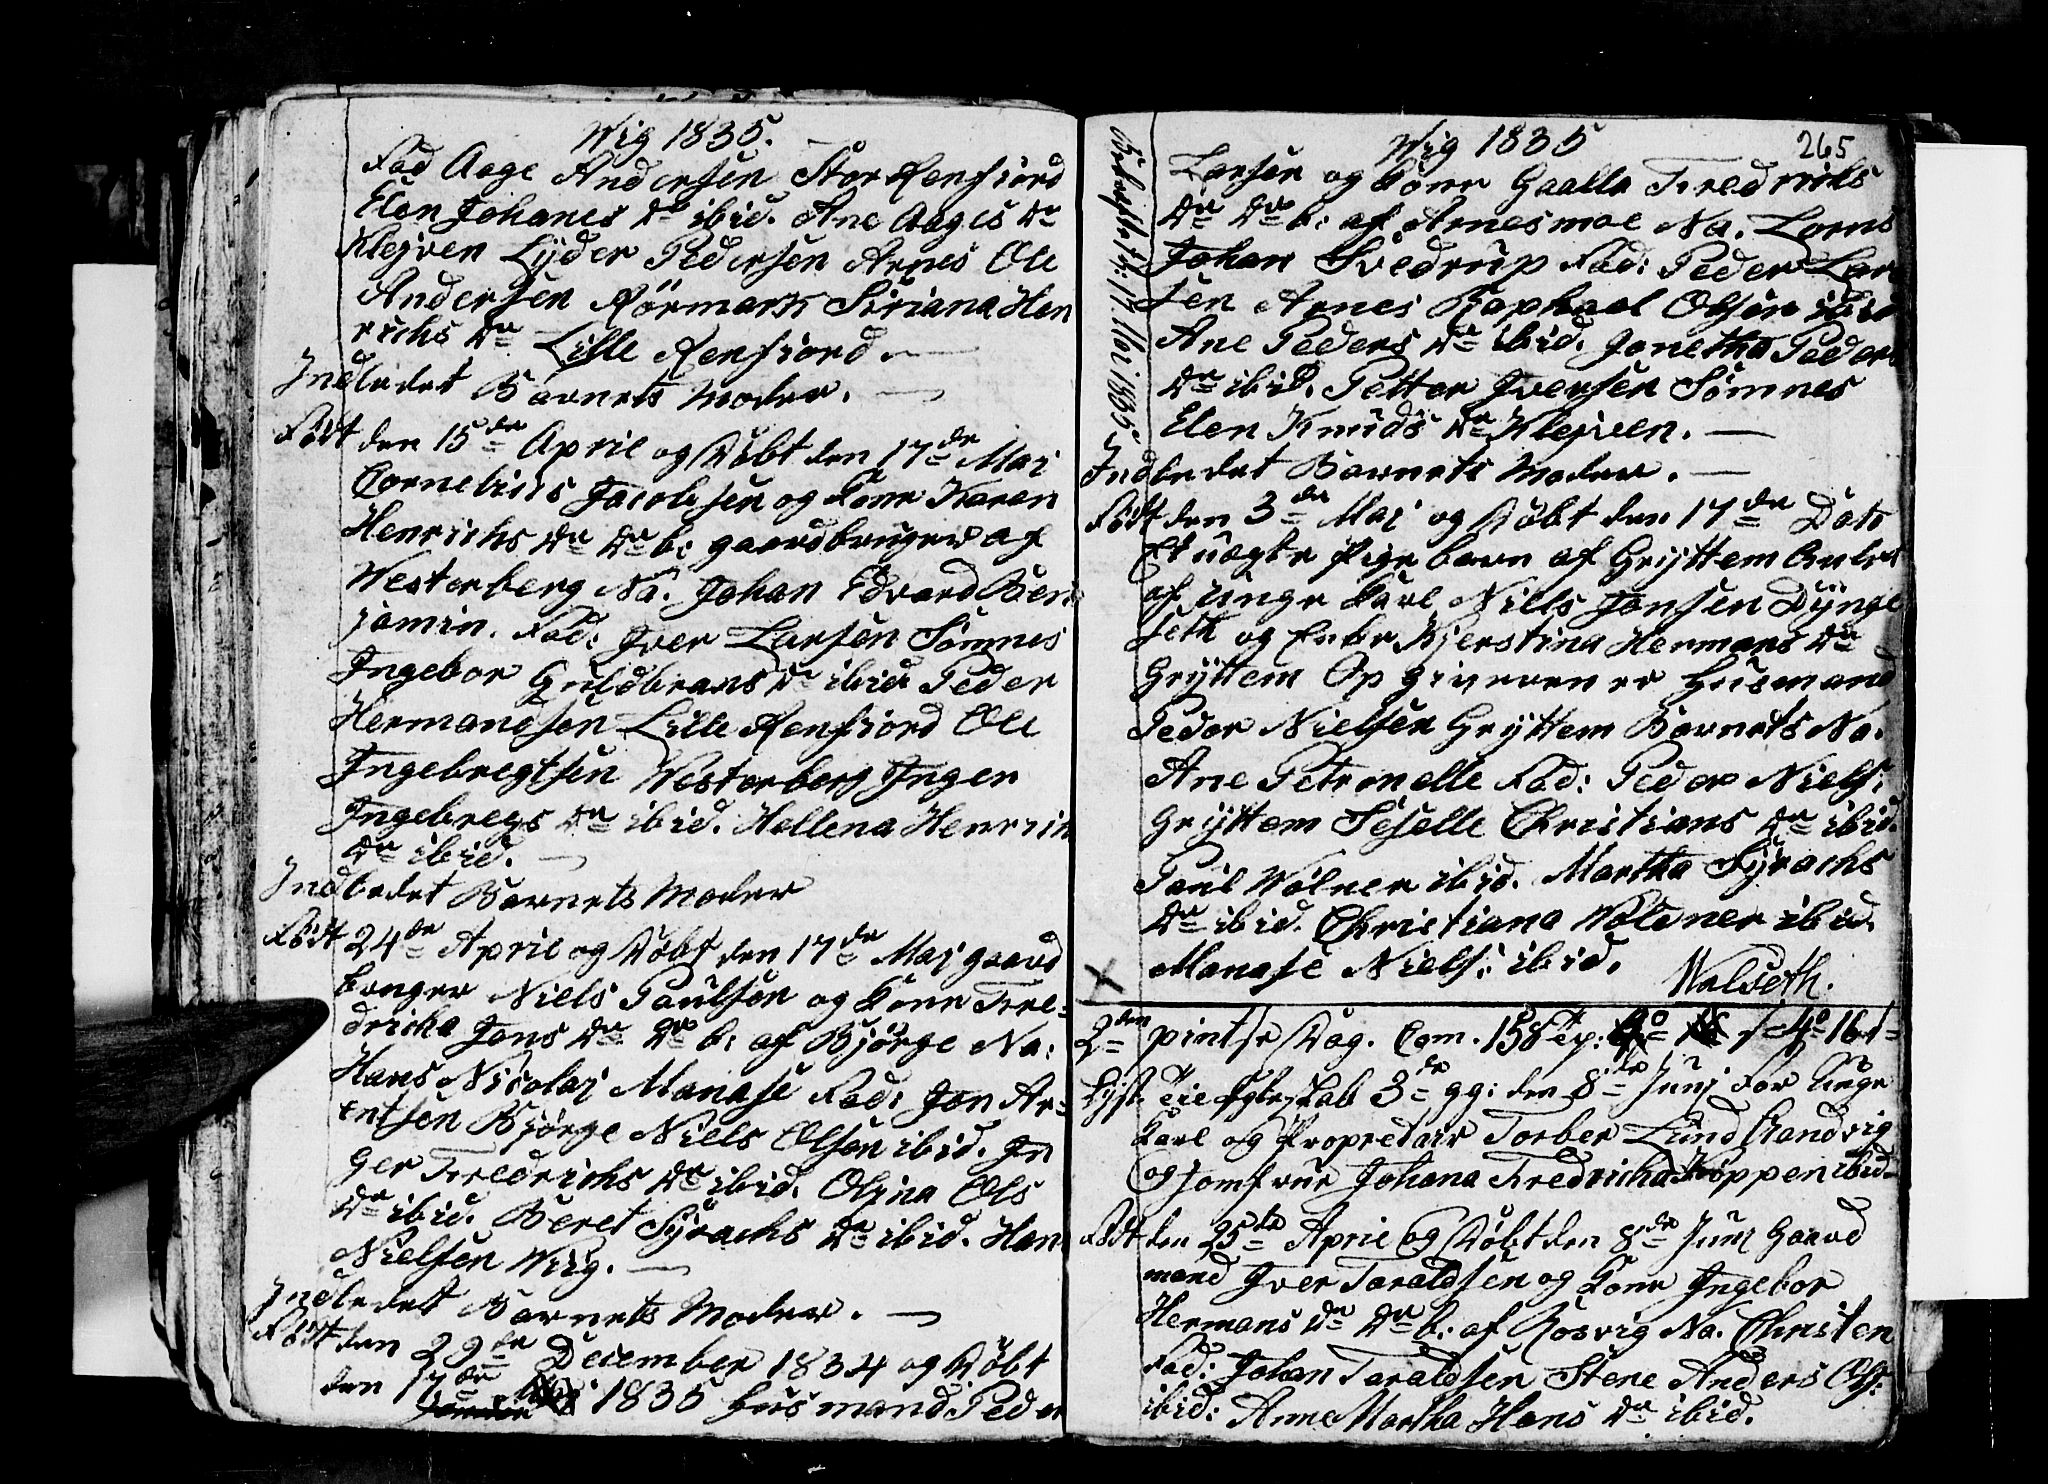 Wig 1835.
Fad Aage Andersen Stor Renfiord
Elen Johanes Dr ibid. Ane Aages Dr
Klejven Lyder Pedersen Arnes Ole
Andersen Rörmark Siriana Hen
richs Dr Lille Renfiord.
Indledet Barnets Moder.
Födt den 15de April og Döbt den 17de Maj
Cornelius Jacobsen og Kone Karen
Henrichs Dr Dr b: gaardbruger af
Westerberg Na. Johan Edvard Ben
jamin. Fad: Iver Larsen Sömnes
Ingebor Guldbrans Dr ibid Peder
Hermansen Lille Renfiord Ole
Ingebregtsen Westerberg Inger
Ingebregs Dr ibid. Hellena Henrich
Dr ibid.
Indledet Barnets Moder
Födt 24de April og Döbt den 17de Maj gaard
bruger Niels Paulsen og Kone Fre-
dricha Jons Dr Dr b: af Björge Na:
Hans Nicolaj Manase Fad: Jon Ar-
entsen Björge Niels Olsen ibid. In
ger Fredrichs Dr ibid. Olina Ols
Dr ibid. Beret Syrachs Dr ibid. Hans
Nielsen Wiig.
Indledet Barnets Moder.
Födt den 29de December 1834 og Döbt
den 17de Maj 1835 Husmand Peder
265
Wig 1835
Bekræftet 17 Maj 1835
Larsen og Kone Gaalla Fredrichs
Dr Dr b: af Arnesmoe Na. Lorns
Johan Svedrup Fad: Peder Lar
sen Arnes Raphael Olsen ibid
Ane Peders Dr ibid. Jonetha Peders
Dr ibid. Petter Iversen Sömnes
Elen Knuds Dr Klejven.
Indledet Barnets Moder.
Födt den 3de Maj og Döbt den 17de Dato
Et uægte Pige barn af Gryttem Anlagt
af unge Karl Niels Jonsen Dynge
seth og Enke Kjerstina Hermans Dr
Gryttem Opgiveren er Husmand
Peder Nielsen Gryttem Barnets Na.
Ane Petronelle Fad: Peder Niels:
Gryttem Seselle Christians Dr ibid.
Paul Wolner ibid. Martha Syrachs
Dr ibid. Christiana Woldner ibid.
Manase Niels: ibid. Walseth.
2den pintse Dag. Com. 158 Sp: 4o 16s
Lyst til Egteskab 3de gg: den 8de Junj For Unge
Karl og Propretair Torber Lund Sandvig
og Jomfrue Johana Fredricha Köppen ibid
Födt den 25te April og Döbt den 8de Junj Gaard
mand Iver Taraldsen og Kone Ingebor
Hermans Dr Dr b: af Rosvig Na. Christen
Fad: Johan Taraldsen Stene Anders Ols:
ibid: Anne Martha Hans Dr ibid.